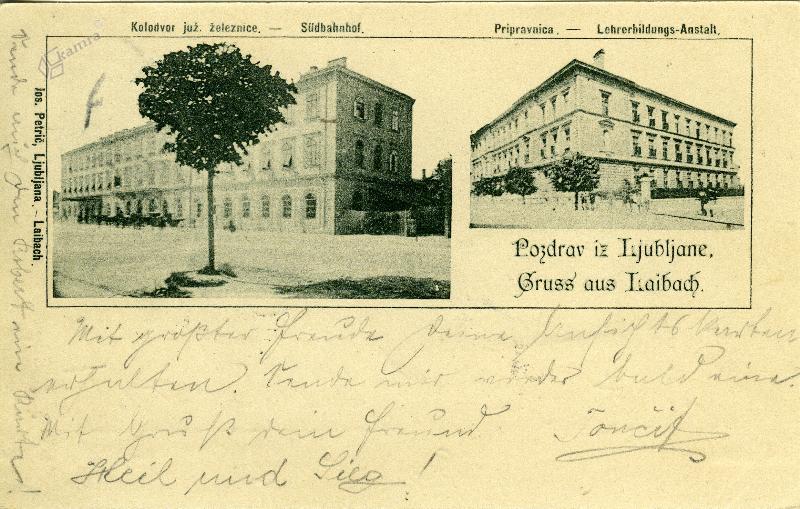 Kolodvor juž. železnice. — Südbahnhof.
Pripravnica. — Lehrerbildungs-Anstalt.
kamra
Jos. Petrič, Ljubljana. - Laibach
Pozdrav iz Ljubljane.
Gruss aus Laibach.
Mit größter Freude Deine Ansichtskarten
erhalten. Sende mir wieder bald eine.
Mit Gruß dein Freund Tončit
Heil und Sieg!
Sende mir eine Karte!